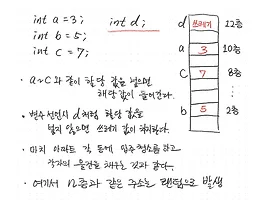 int a = 3;   int d;
int b = 5;
int c = 7;
d 쓰레기 12층
a 3 10층
c 7 8층
b 5 2층
· a~c와 같이 할당 값을 넣으면
해당 값이 들어간다.
· 변수 선언시 d처럼 해당 값을
넣지 않으면 쓰레기 값이 차지한다.
· 마치 아파트 각 동에 입주 했고
각자의 물건을 채우는 것과 같다.
· 여기서 n층과 같은 주소는 랜덤으로 발생